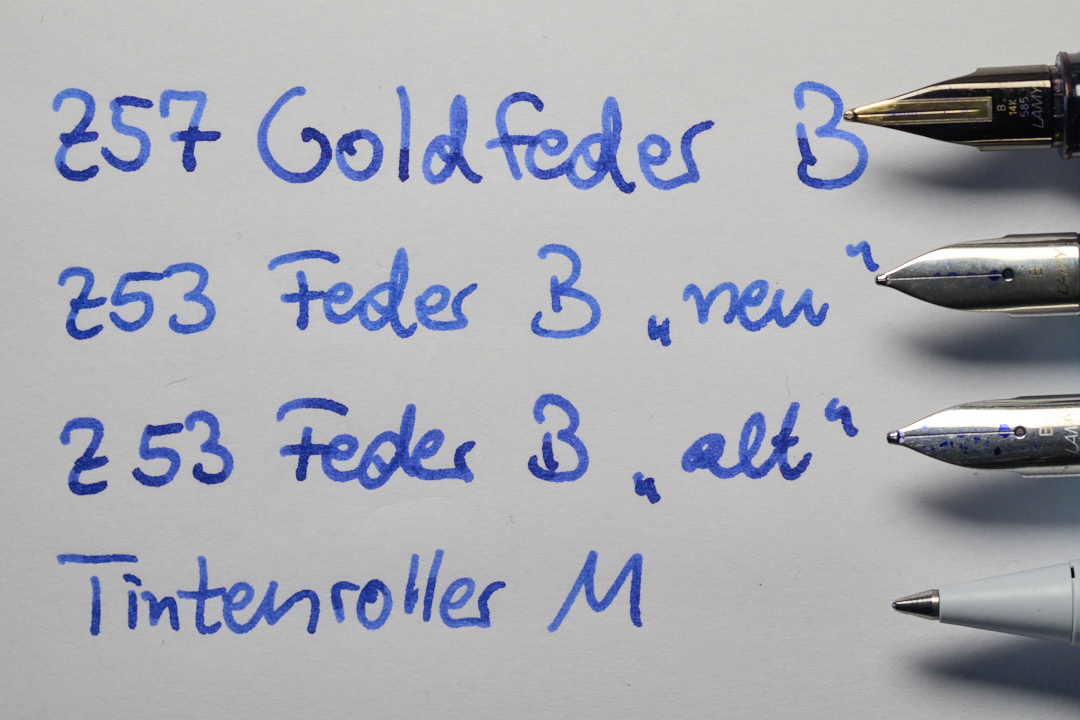 Z57 Goldfeder B
B 14K 585 LAMY
Z53 Feder B „neu“
B LAMY
Z53 Feder B „alt“
B LAMY
Tintenroller M